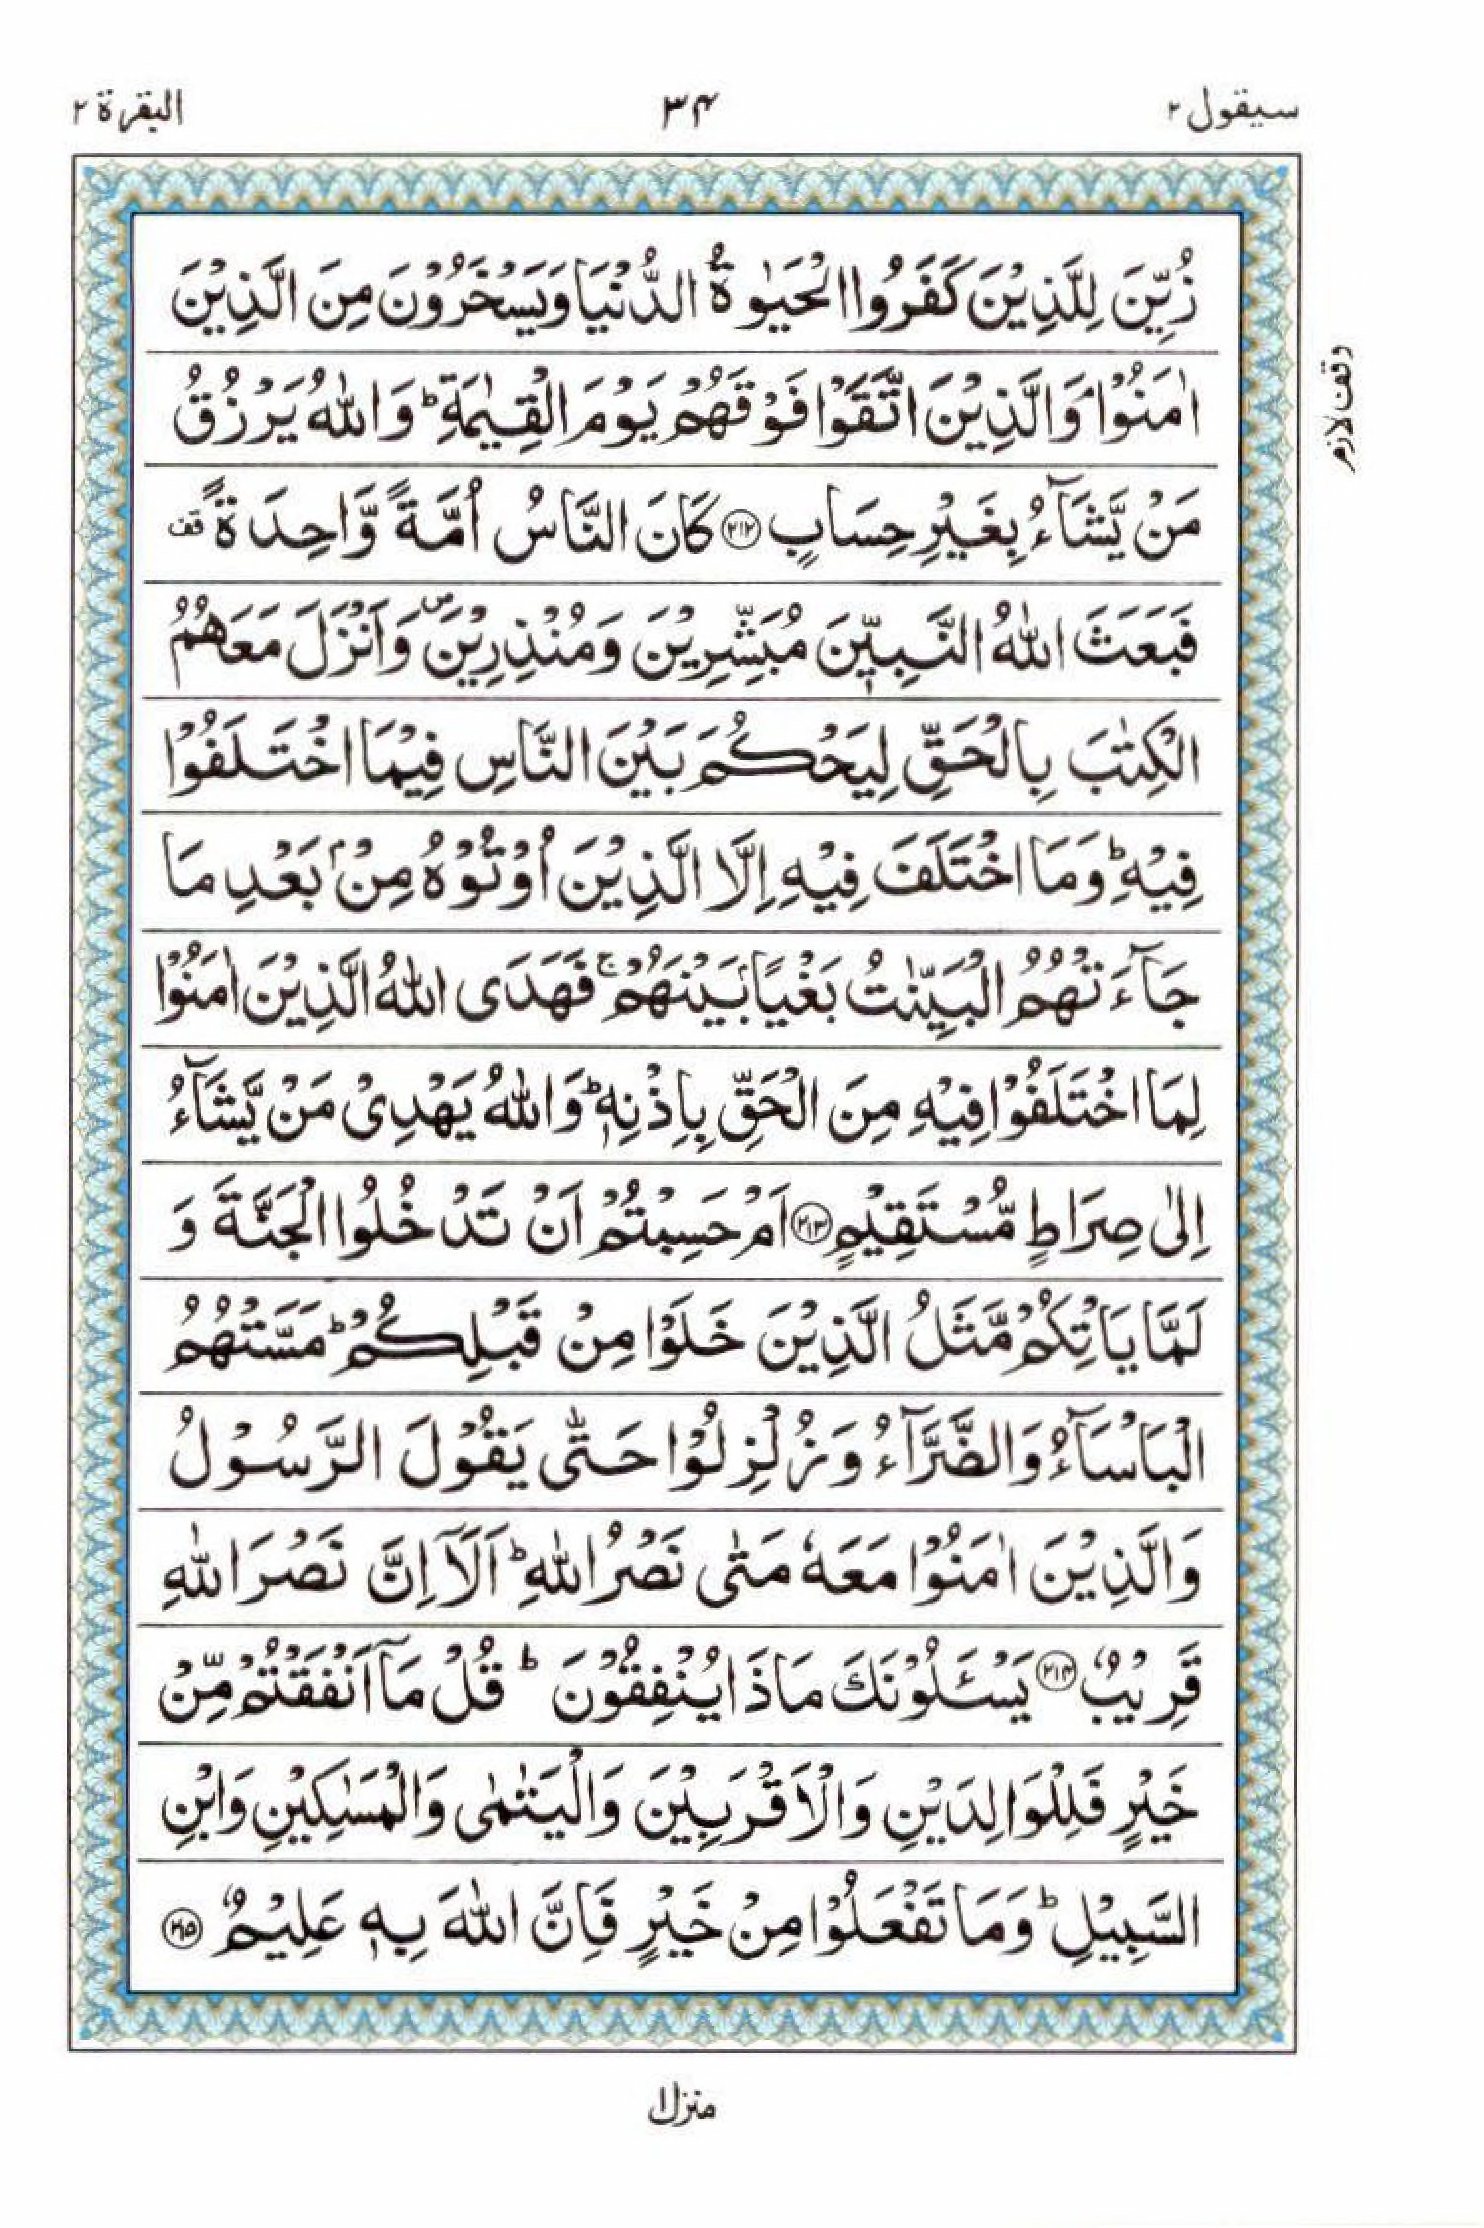 سيقول ٢ ٣۴ البقرة ٢
زُيِّنَ لِلَّذِيْنَ كَفَرُوا الْحَيٰوةُ الدُّنْيَا وَيَسْخَرُوْنَ مِنَ الَّذِيْنَ
اٰمَنُوْاۘ وَالَّذِيْنَ اتَّقَوْا فَوْقَهُمْ يَوْمَ الْقِيٰمَةِؕ وَاللّٰهُ يَرْزُقُ
وقف لازم
مَنْ يَّشَآءُ بِغَيْرِ حِسَابٍ ﴿٢١٢﴾ كَانَ النَّاسُ اُمَّةً وَّاحِدَةً قف
فَبَعَثَ اللّٰهُ النَّبِيّٖنَ مُبَشِّرِيْنَ وَمُنْذِرِيْنَ ص وَاَنْزَلَ مَعَهُمُ
الْكِتٰبَ بِالْحَقِّ لِيَحْكُمَ بَيْنَ النَّاسِ فِيْمَا اخْتَلَفُوْا
فِيْهِؕ وَمَا اخْتَلَفَ فِيْهِ اِلَّا الَّذِيْنَ اُوْتُوْهُ مِنْۢ بَعْدِ مَا
جَآءَتْهُمُ الْبَيِّنٰتُ بَغْيًاۢ بَيْنَهُمْۚ فَهَدَى اللّٰهُ الَّذِيْنَ اٰمَنُوْا
لِمَا اخْتَلَفُوْا فِيْهِ مِنَ الْحَقِّ بِاِذْنِهٖؕ وَاللّٰهُ يَهْدِيْ مَنْ يَّشَآءُ
اِلٰى صِرَاطٍ مُّسْتَقِيْمٍ ﴿٢١٣﴾ اَمْ حَسِبْتُمْ اَنْ تَدْخُلُوا الْجَنَّةَ وَ
لَمَّا يَاْتِكُمْ مَّثَلُ الَّذِيْنَ خَلَوْا مِنْ قَبْلِكُمْؕ مَسَّتْهُمُ
الْبَاْسَآءُ وَالضَّرَّآءُ وَزُلْزِلُوْا حَتّٰى يَقُوْلَ الرَّسُوْلُ
وَالَّذِيْنَ اٰمَنُوْا مَعَهٗ مَتٰى نَصْرُ اللّٰهِؕ اَلَآ اِنَّ نَصْرَ اللّٰهِ
قَرِيْبٌ ﴿٢١۴﴾ يَسْـَٔلُوْنَكَ مَاذَا يُنْفِقُوْنَؕ قُلْ مَآ اَنْفَقْتُمْ مِّنْ
خَيْرٍ فَلِلْوَالِدَيْنِ وَالْاَقْرَبِيْنَ وَالْيَتٰمٰى وَالْمَسٰكِيْنِ وَابْنِ
السَّبِيْلِؕ وَمَا تَفْعَلُوْا مِنْ خَيْرٍ فَاِنَّ اللّٰهَ بِهٖ عَلِيْمٌ ﴿٢١٥﴾
منزل ١